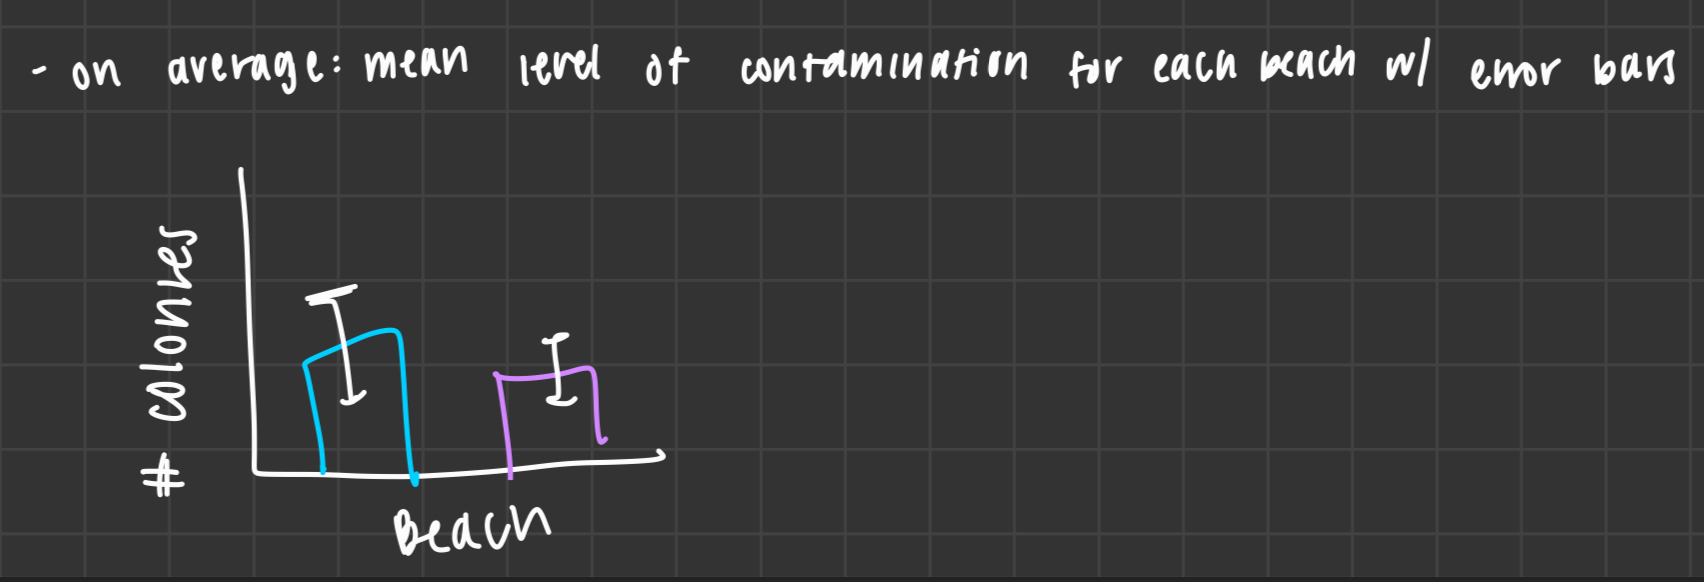 - on average: mean level of contamination for each beach w/ error bars
# colonies
Beach